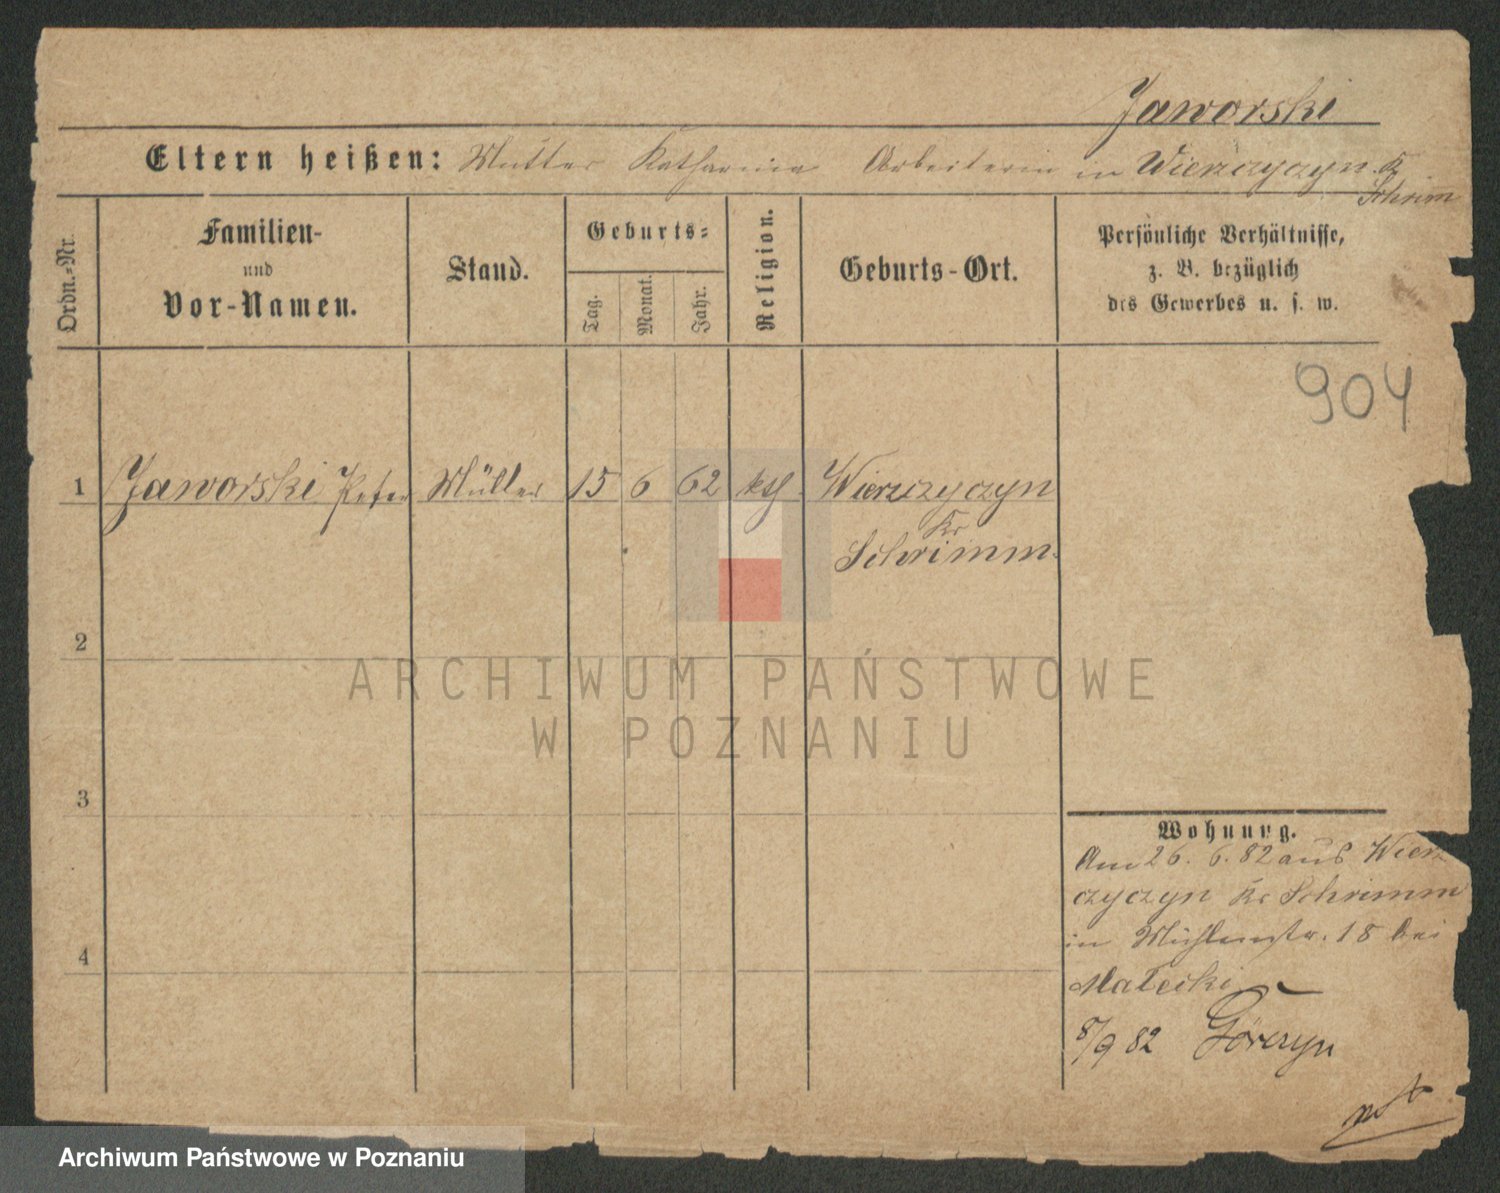 Jaworski
Eltern heißen: Mutter Katharina Arbeiterin in Wierzczyczyn Kr
Schrim
Ordn.-Nr.
Familien-
und
Vor-Namen.
Stand.
Geburts-
Tag.
Monat.
Jahr.
Religion.
Geburts-Ort.
Persönliche Verhältnisse,
z. B. bezüglich
des Gewerbes u. s. w.
904
1 Jaworski Peter Müller 15 6 62 kth. Wierzczyczyn
Kr
Schrimm.
2
3
4
Wohnung.
Am 26. 6. 82 aus Wierz
czyczyn Kr Schrimm
in Mühlenstr. 18 bei
Małecki
8/9 82 Górczyn
ARCHIWUM PAŃSTWOWE
W POZNANIU
Archiwum Państwowe w Poznaniu